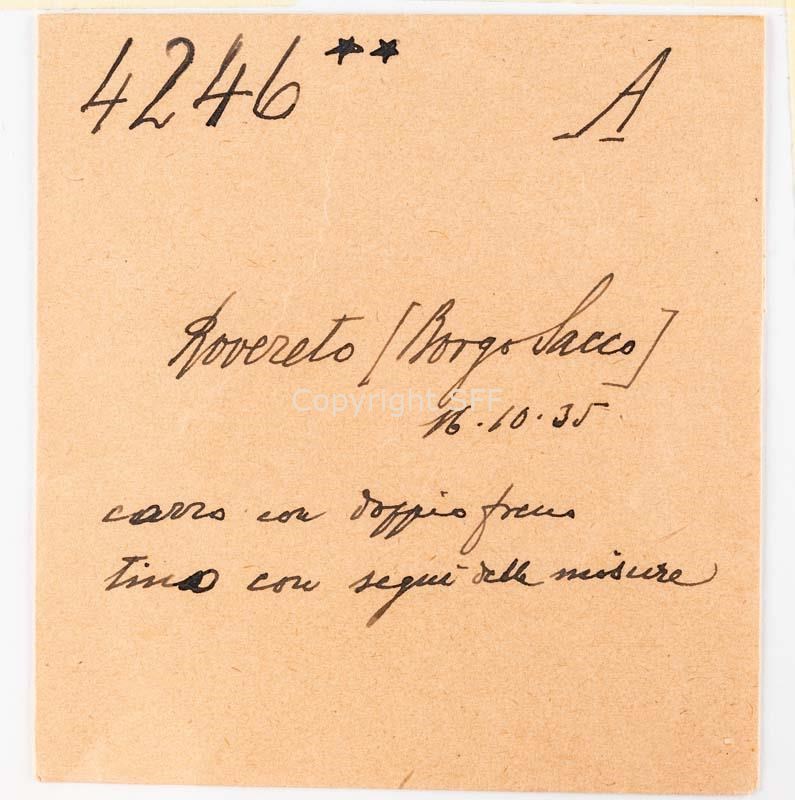 4246** A
Rovereto [Borgo Sacco]
Copyright SFF
16.10.35
carro con doppio freno
tino con segni delle misure